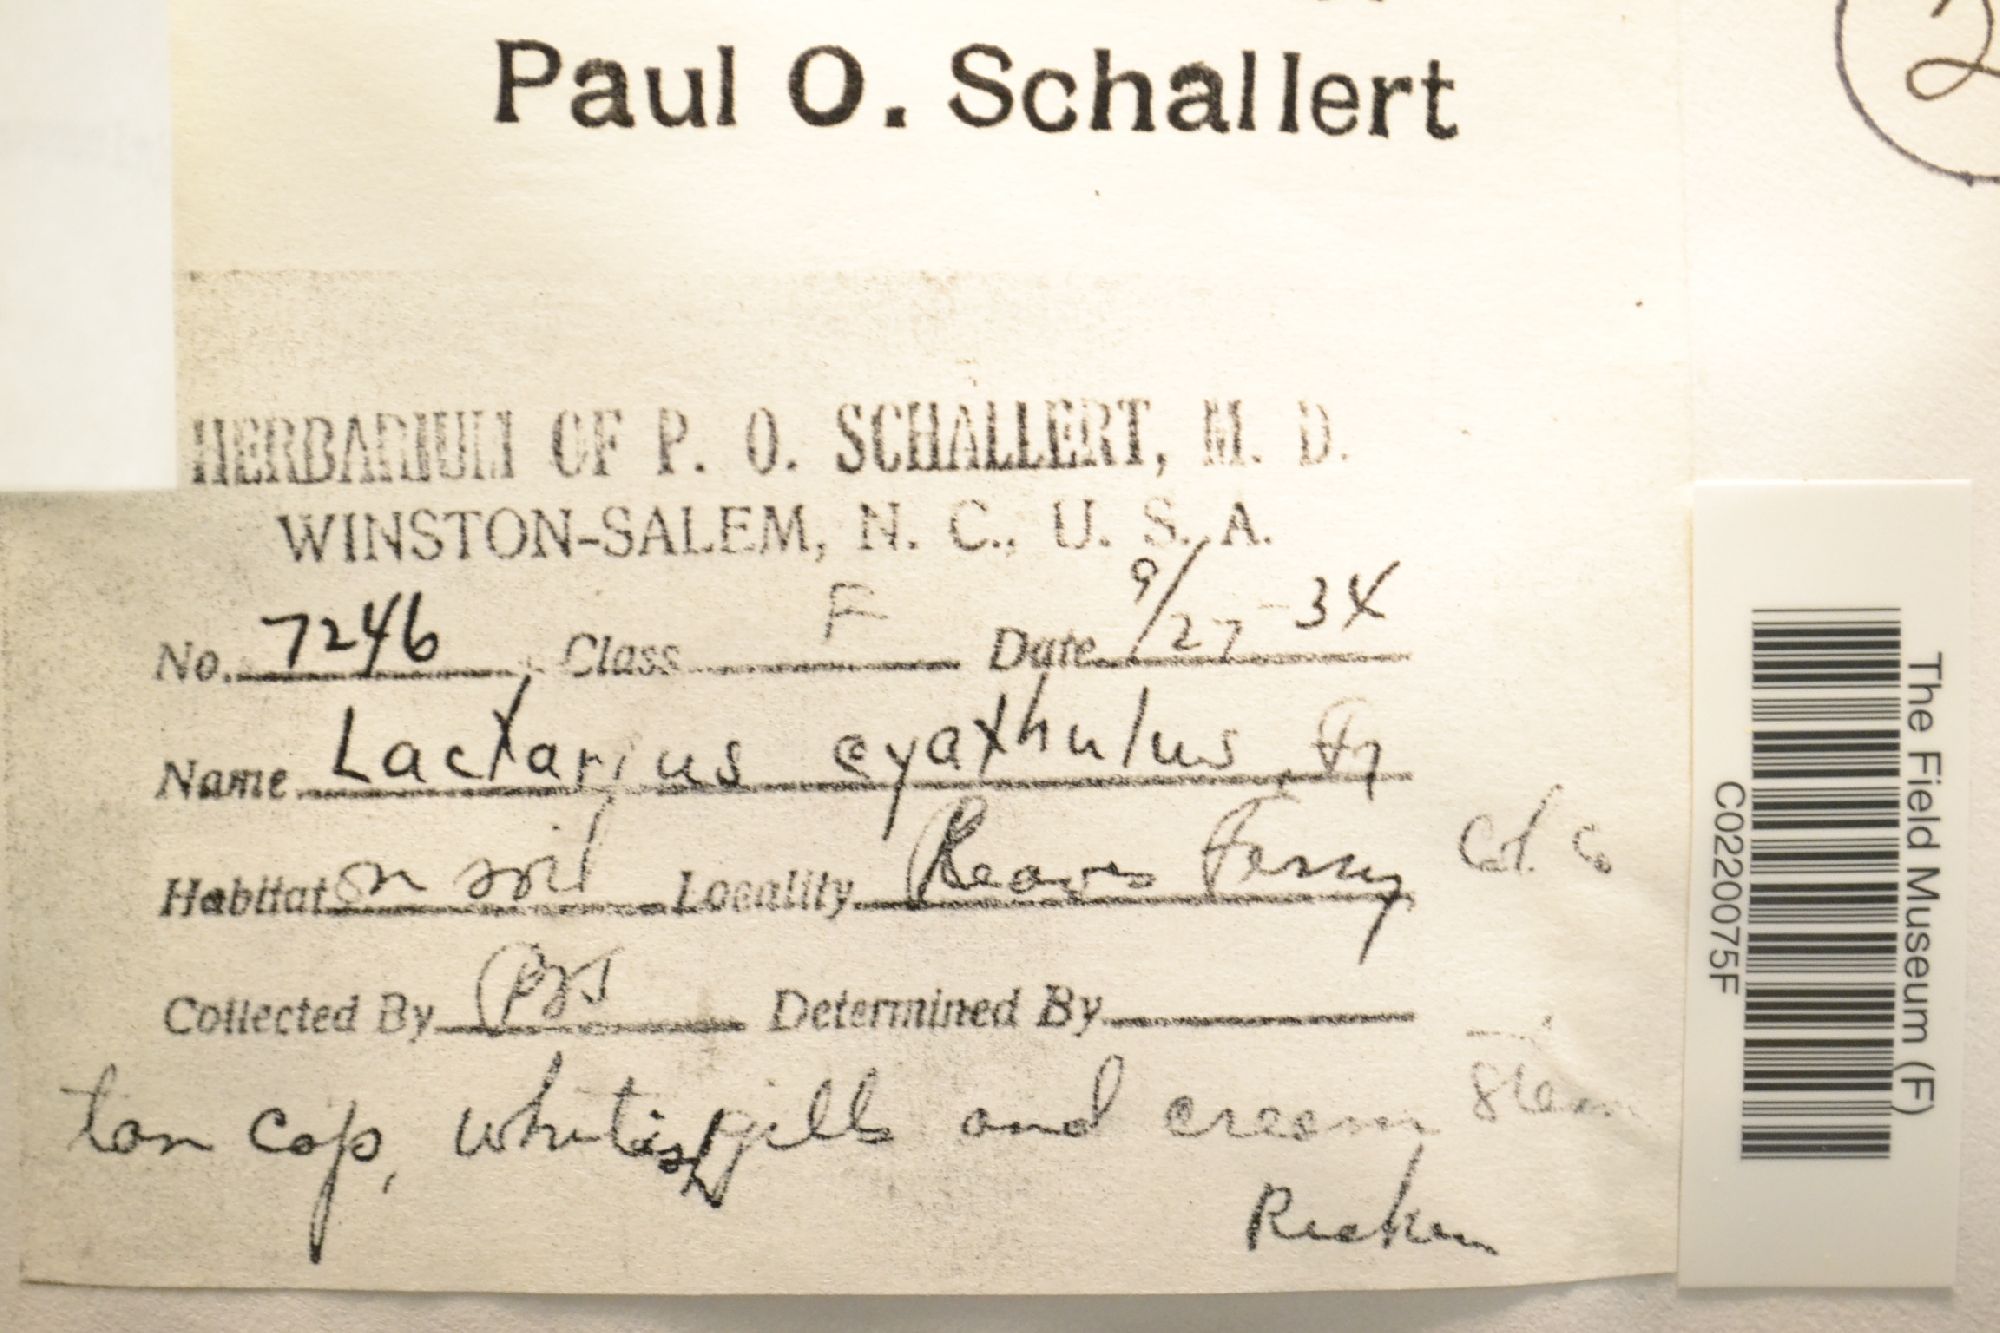 Paul O. Schallert
2
HERBARIUM OF P. O. SCHALLERT, M. D.
WINSTON-SALEM, N. C., U. S. A.
No. 7246 Class F Date 9/27-34
Name Lactarius cyathulus Fr
Habitat on soil Locality Reaves Ferry Col. Co
Collected By POS Determined By
tan cap, whitish gills and cream stem
Ricken
The Field Museum (F)
C0220075F